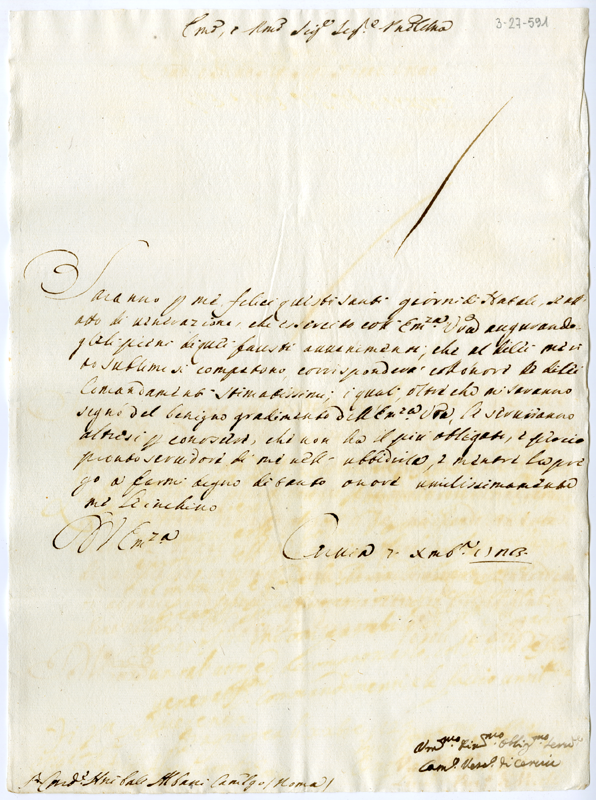 Em.º, e Rmo Sig.r Sig.r e Pne Colmo
3-27-591
Saranno p me felici questi santi giorni di Natale, se all'
atto di venerazione, che esercito con Em.za Vra augurando-
gli pieni di quei fausti avvenimenti, che al di lei meri
to sublime si competono corrisponderà coll'onore de di lei
Comandamenti stimatissimi; i quali, oltre che mi saranno
segno del benigno gradimento dell'Em.za Vra, Le serviranno
altresì p conoscere, che non ha il più obligato, e
pronto servidore di me nell'ubbidirla, e mentre La pre
go a farmi degno di tanto onore umilissimamente
me Le inchino
D V Em.za
Cervia 7 Xmb.re 1703
Um.mo Di.mo Obblig.mo Serv.e
Cam.o Vesc.o di Cervia
S.r Card.e Anibale Albani Camlgo (Roma)